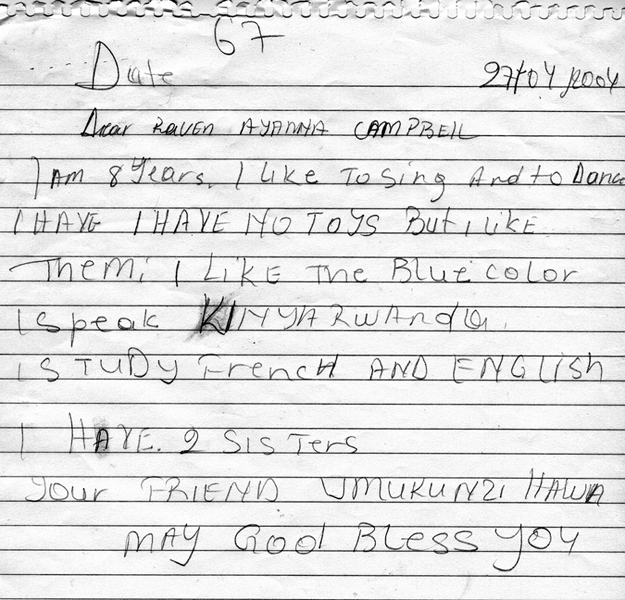 67
Date 27/04/2004
Dear RAVEN AYANNA CAMPBELL
I AM 8 Years. I Like To Sing And to Dance
I HAVE I HAVE NO TOYS But I LIKE
Them; I LIKE THE Blue color
I speak KINYARWANDA.
I STUDY French AND ENGLISH
I HAVE. 2 SISTers
Your FRIEND UMUKUNZI HAWA
MAY GOD BLESS YOU